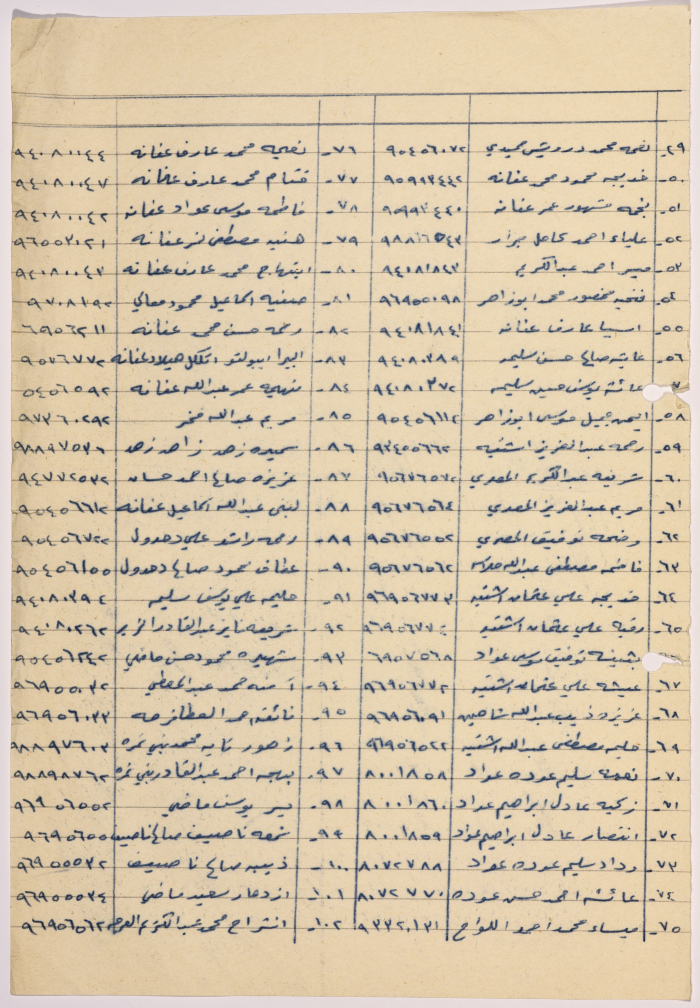 ٤٩- نعمه محمد درويش حميدي ٩٥٤٥٦٠٧٢ ٧٦- نعيمه محمد عارف عفانه ٩٤٠٨٠٠٤٤
٥٠- خديجه محمود محمد عفانه ٩٥٩٩٣٤٤٢ ٧٧- ختام محمد عارف عفانه ٩٤٠٨٠٠٤٧
٥١- نجمه مشهور عمر عفانه ٩٥٩٩٣٤٤٠ ٧٨- فاطمه موسى عواد عفانه ٩٤٠٨٠٠٤٢
٥٢- علياء احمد كامل جرار ٩٨٨١٦٥٤٣ ٧٩- هنيه مصطفى نمر عفانه ٩٦٥٥٣٠٢١
٥٣- ميسر احمد عبدالكريم ٩٤٠٨١٨٢٣ ٨٠- ابتهاج محمد عارف عفانه ٩٤٠٨٠٠٤٣
٥٤- فتحيه منصور محمد ابوزاهر ٩٦٩٥٥٠٩٨ ٨١- صفيه اسماعيل محمود معالي ٩٧٠٨١٢٩٢
٥٥- اسيا عارف عفانه ٩٤٠٨١٨٤١ ٨٢- رحمه حسن محمد عفانه ٦٩٥٦٢١١
٥٦- عايشه صالح حسن سليمه ٩٤٠٨٠٣٨٩ ٨٣- البيرا ايبولتو ميلاد عفانه ٩٥٧٦٧٧٢
عائشه يوسف حسين سليمه ٩٤٠٨٠٣٧٢ ٨٤- فهيمه عمر عبدالله عفانه ٥٤٥٦٥٩٢
٥٨- ايمن جميل موسى ابوزاهر ٩٥٤٥٦١١٢ ٨٥- مريم عبدالله مخمر ٩٧٣٦٠٢٩٢
٥٩- رحمه عبدالعزيز اشتيه ٩٣٤٥٥٦٦٢ ٨٦- سميره زهد زاهد زهد ٩٨٨٩٧٥٣٦
٦٠- شريفه عبدالكريم المصري ٩٥٦٧٦٥٧٢ ٨٧- عزيزه صالح احمد حسان ٩٤٧٧٢٥٣٢
٦١- مريم عبدالعزيز المصري ٩٥٦٧٦٥٦٤ ٨٨- لبنى عبدالله اسماعيل عفانه ٩٥٤٥٦٦١٢
٦٢- وضحه توفيق المصري ٩٥٦٧٦٥٥٢ ٨٩- رحمه راشد علي دهدول ٩٥٤٥٦٧٢٢
٦٣- فاطمه مصطفى عبدالله ٩٥٦٧٦٥٦٢ ٩٠- عفاف محمود صالح دهدول ٩٥٤٥٦١٥٥
٦٤- خديجه علي عثمان اشتيه ٩٦٩٥٦٧٧٣ ٩١- حليمه علي يوسف سليمه ٩٤٠٨٠٣٩٤
٦٥- رقيه علي عثمان اشتيه ٩٦٩٥٦٧٧٤ ٩٢- شريفه فايز عبدالقادر الزير ٩٤٠٨٠٢٦٢
بثينه توفيق موسى عواد ٦٩٥٧٥٦٨ ٩٣- شهيره محمود حسن ماضي ٩٥٤٥٦٢٤٢
٦٧- عيشه علي عثمان اشتيه ٩٦٩٥٦٧٧٢ ٩٤- آمنه حمد عبدالمعطي ٩٦٩٥٥٠٣٢
٦٨- عزيزه ذيب عبدالله شاهين ٩٦٩٥٦٠٩١ ٩٥- فائقه احمد ٩٦٩٥٦٠٣٣
٦٩- حليمه مصطفى عبدالله اشتيه ٩٦٩٥٦٥٢٢ ٩٦- زهور نايه محمد بني نمره ٩٨٨٩٧٦٠٣
٧٠- نعمه سليم عوده عواد ٨٠٠١٨٥٨ ٩٧- بهجه احمد عبدالقادر بني نمره ٩٨٨٩٨٧٦٢
٧١- زكيه عادل ابراهيم عواد ٨٠٠١٨٦٠ ٩٨- يسر يوسف ماضي ٩٦٩٥٦٥٥٢
٧٢- انتصار عادل ابراهيم عواد ٨٠٠١٨٥٩ ٩٩- شمعه ناصيف صالح ناصيف ٩٦٩٥٦٥٥
٧٣- وداد سليم عوده عواد ٨٠٧٢٧٨٨ ١٠٠- ذيبه صالح ناصيف ٩٦٩٥٥٥٣٢
٧٤- عائشه احمد حسن عوده ٨٠٧٢٧٧٠ ١٠١- ازدهار سعيد ماضي ٩٦٩٥٥٥٣٤
٧٥- ميساء محمد احمد اللواح ٩٣٣٢٠١٣١ ١٠٢- انشراح محمد عبدالكريم ٩٦٩٥٦٥٦٢